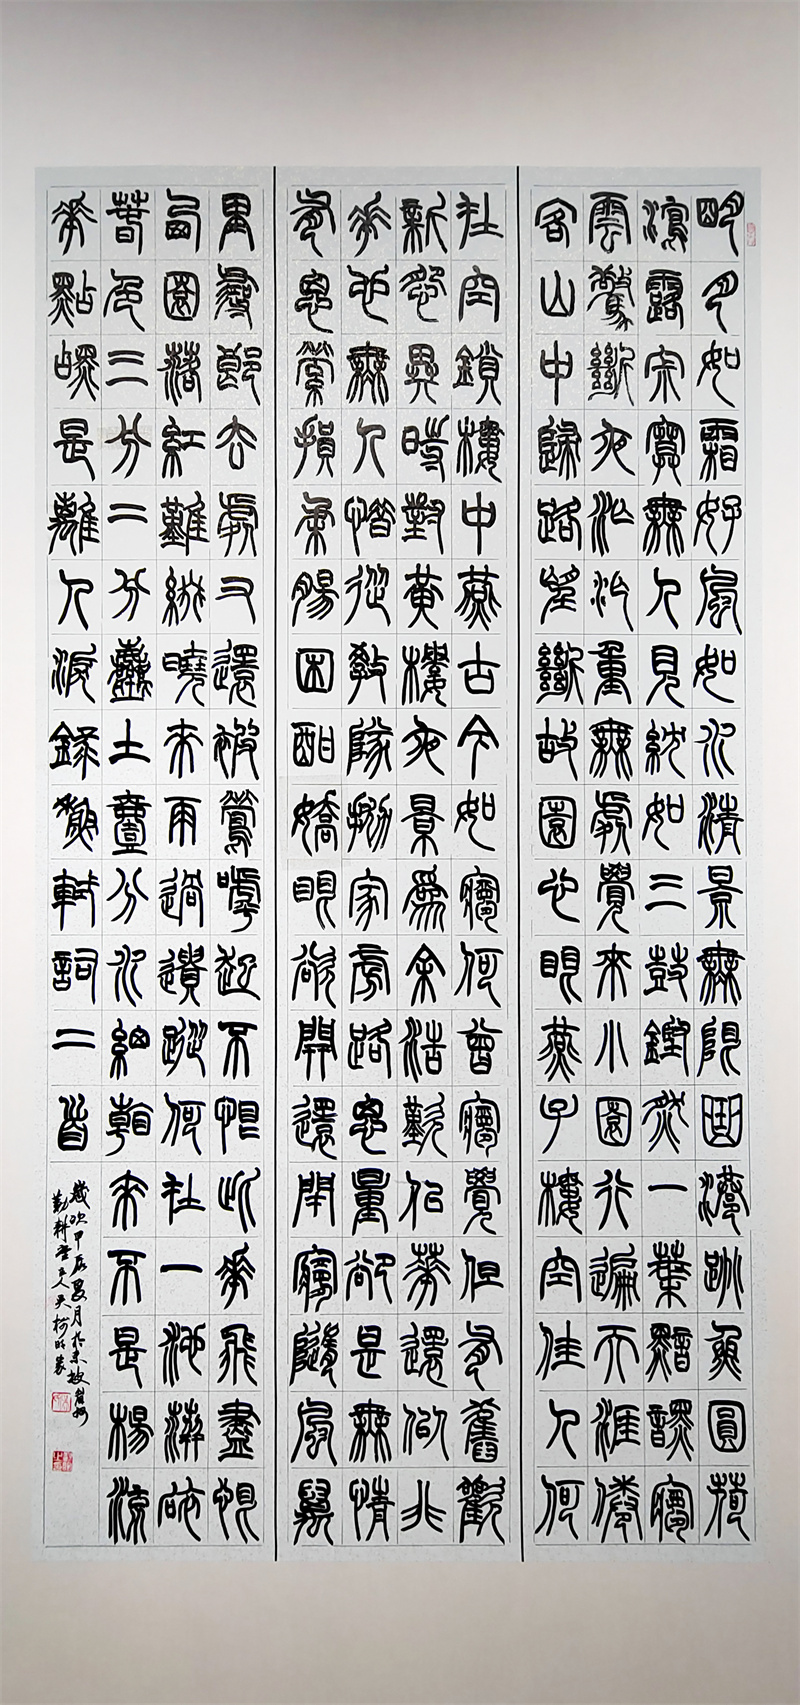 明月如霜好風如水清景無限曲港跳魚圓荷
瀉露寂寞無人見紞如三鼓鏗然一葉黯黯夢
雲驚斷夜茫茫重無處覺來小園行遍天涯倦
客山中歸路望斷故園心眼燕子樓空佳人何
在空鎖樓中燕古今如夢何曾夢覺但有舊歡
新怨異時對黃樓夜景為余浩歎似花還似非
花也無人惜從教墜拋家傍路思量卻是無情
有思縈損柔腸困酣嬌眼欲開還閉夢隨風萬
里尋郎去處又還被鶯呼起不恨此花飛盡恨
西園落紅難綴曉來雨過遺蹤何在一池萍碎
春色三分二分塵土壹分水細看來不是楊流
花點點是離人淚錄蘇軾詞二首
歲次甲辰夏月於
勤耕堂主人吳